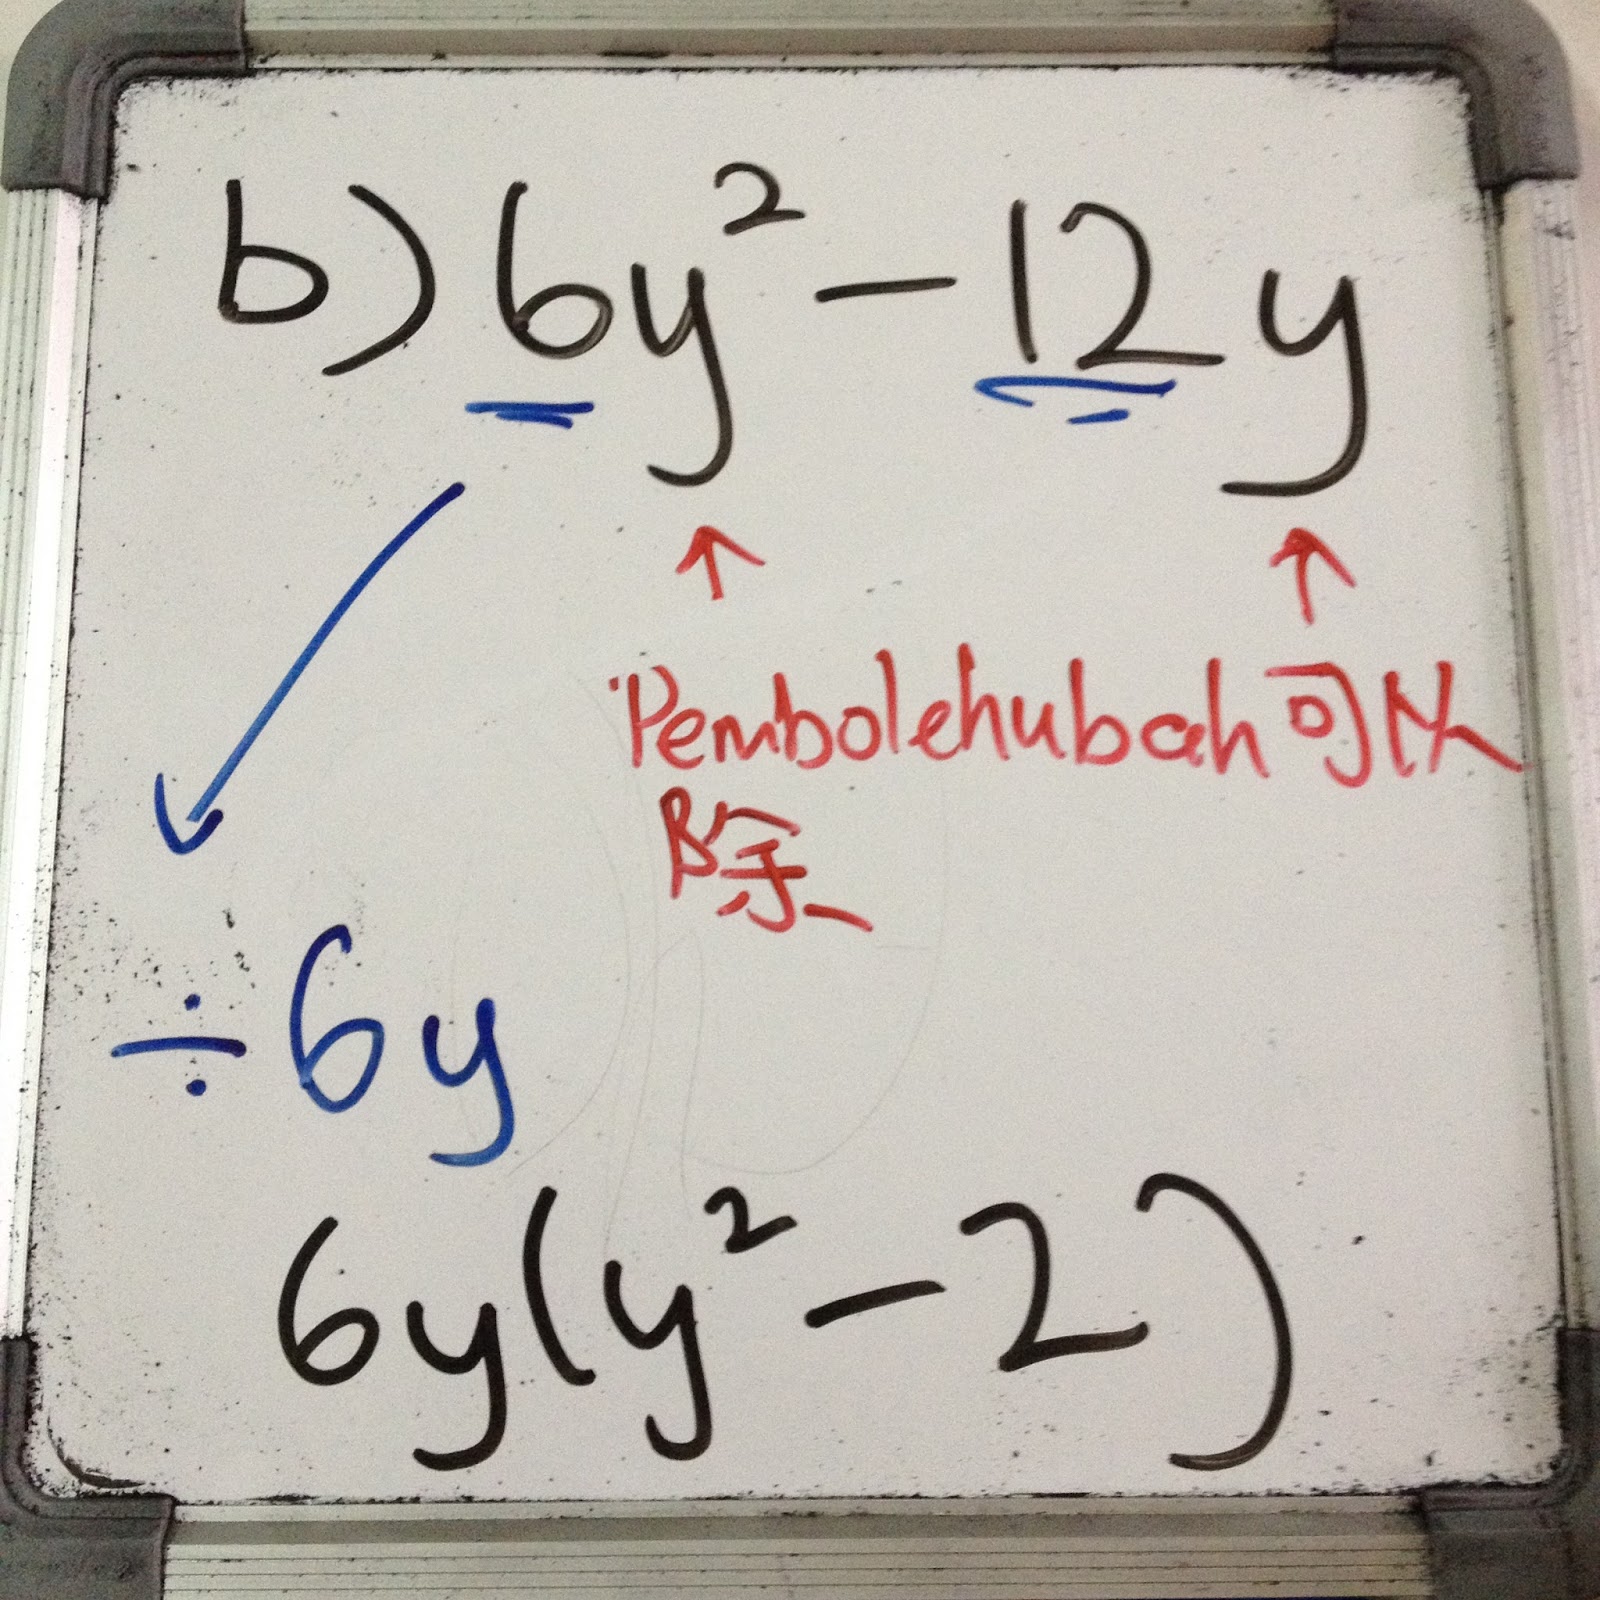 b) 6y² - 12y
Pembolehubah可以
除
÷6y
6y(y² - 2)